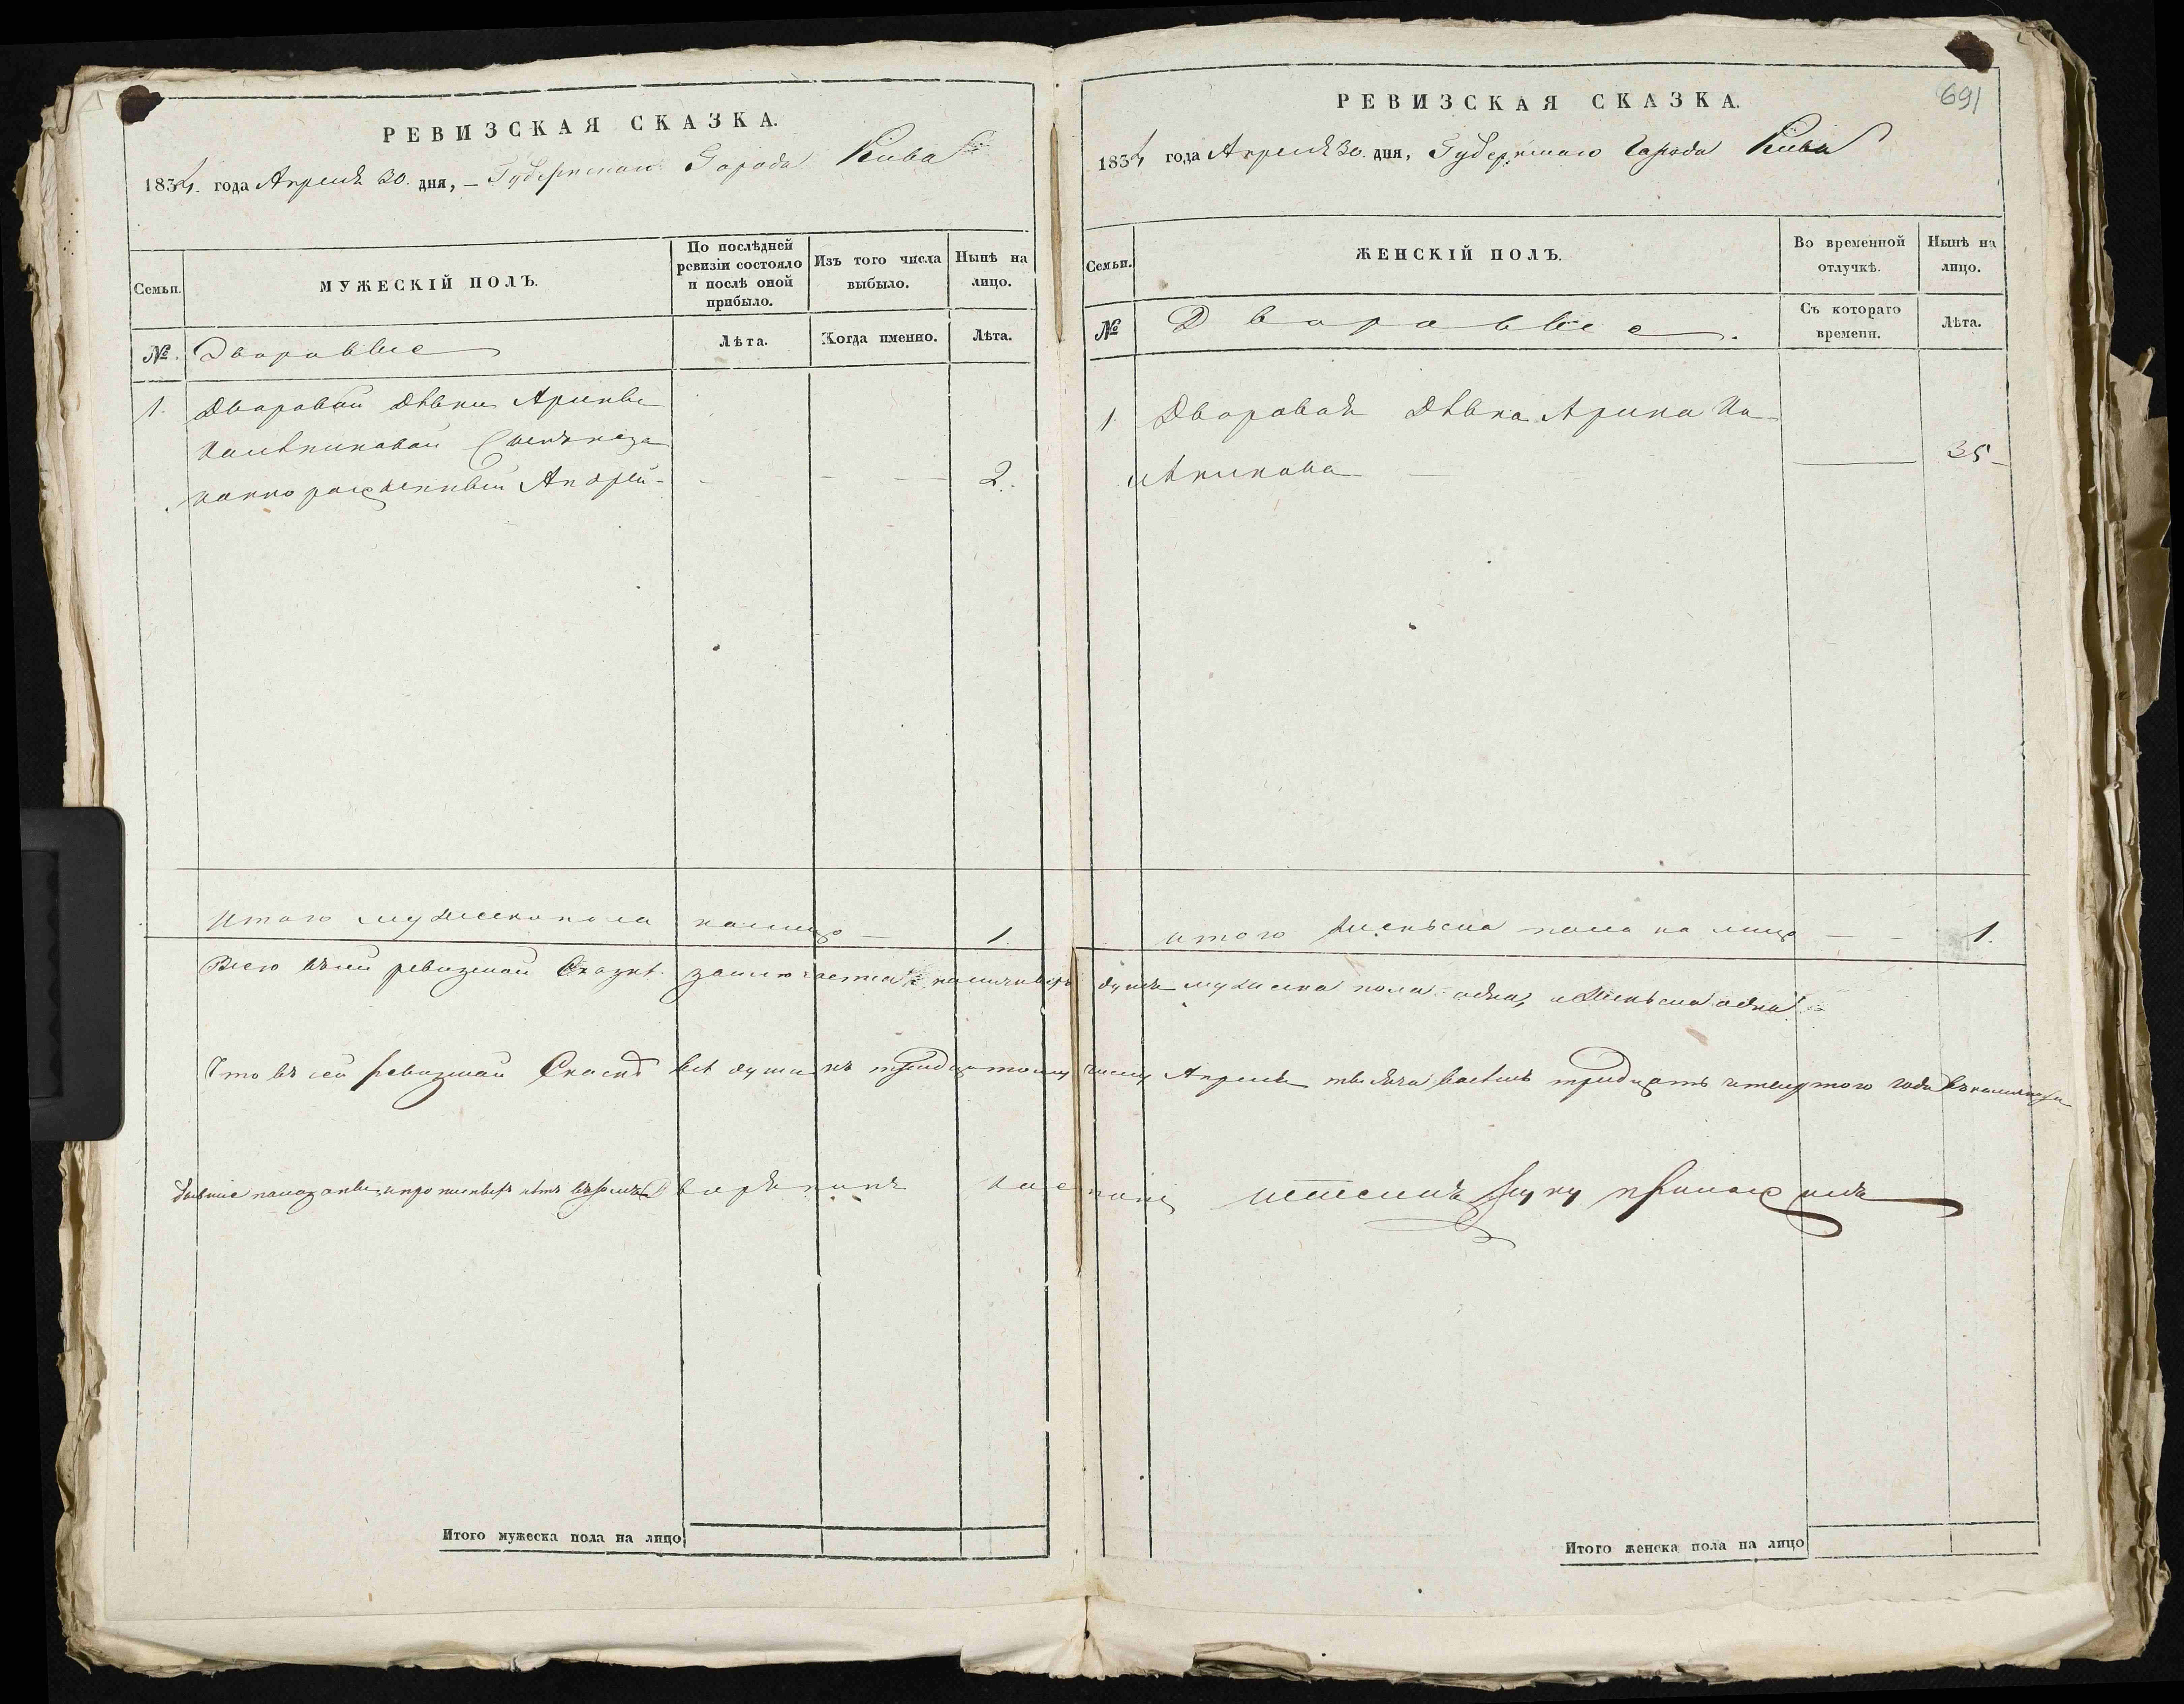 РЕВИЗСКАЯ СКАЗКА.
1834. года Апреля 30. дня, – Губернскаго Города Киева
Семьи.
МУЖЕСКІЙ ПОЛЪ.
По послѣдней ревизіи состояло и послѣ оной прибыло.
Изъ того числа выбыло.
Нынѣ на лицо.
№.
Дворовые
Лѣта.
Когда именно.
Лѣта.
1. Дворовой дѣвки Арины
сынъ незаконно рожденный Андрей – 2.
Итого мужеска пола на лицо – 1.
Итого мужеска пола на лицо
РЕВИЗСКАЯ СКАЗКА.
691
1834 года Апреля 30. дня, Губернскаго Города Киева
Семьи.
ЖЕНСКІЙ ПОЛЪ.
Во временной отлучкѣ.
Нынѣ на лицо.
№
Дворовые.
Съ котораго времени.
Лѣта.
1. Дворовая Дѣвка Арина
35
итого женска пола на лицо – 1.
Всего въ сей ревизской Сказке заключается наличныхъ душъ мужеска пола одна, и женска одна
Что въ сей ревизской Скаске все души къ тридцатому числу Апреля тысяча восемь тридцать четвертого года въ
руку приложилъ
Итого женска пола на лицо